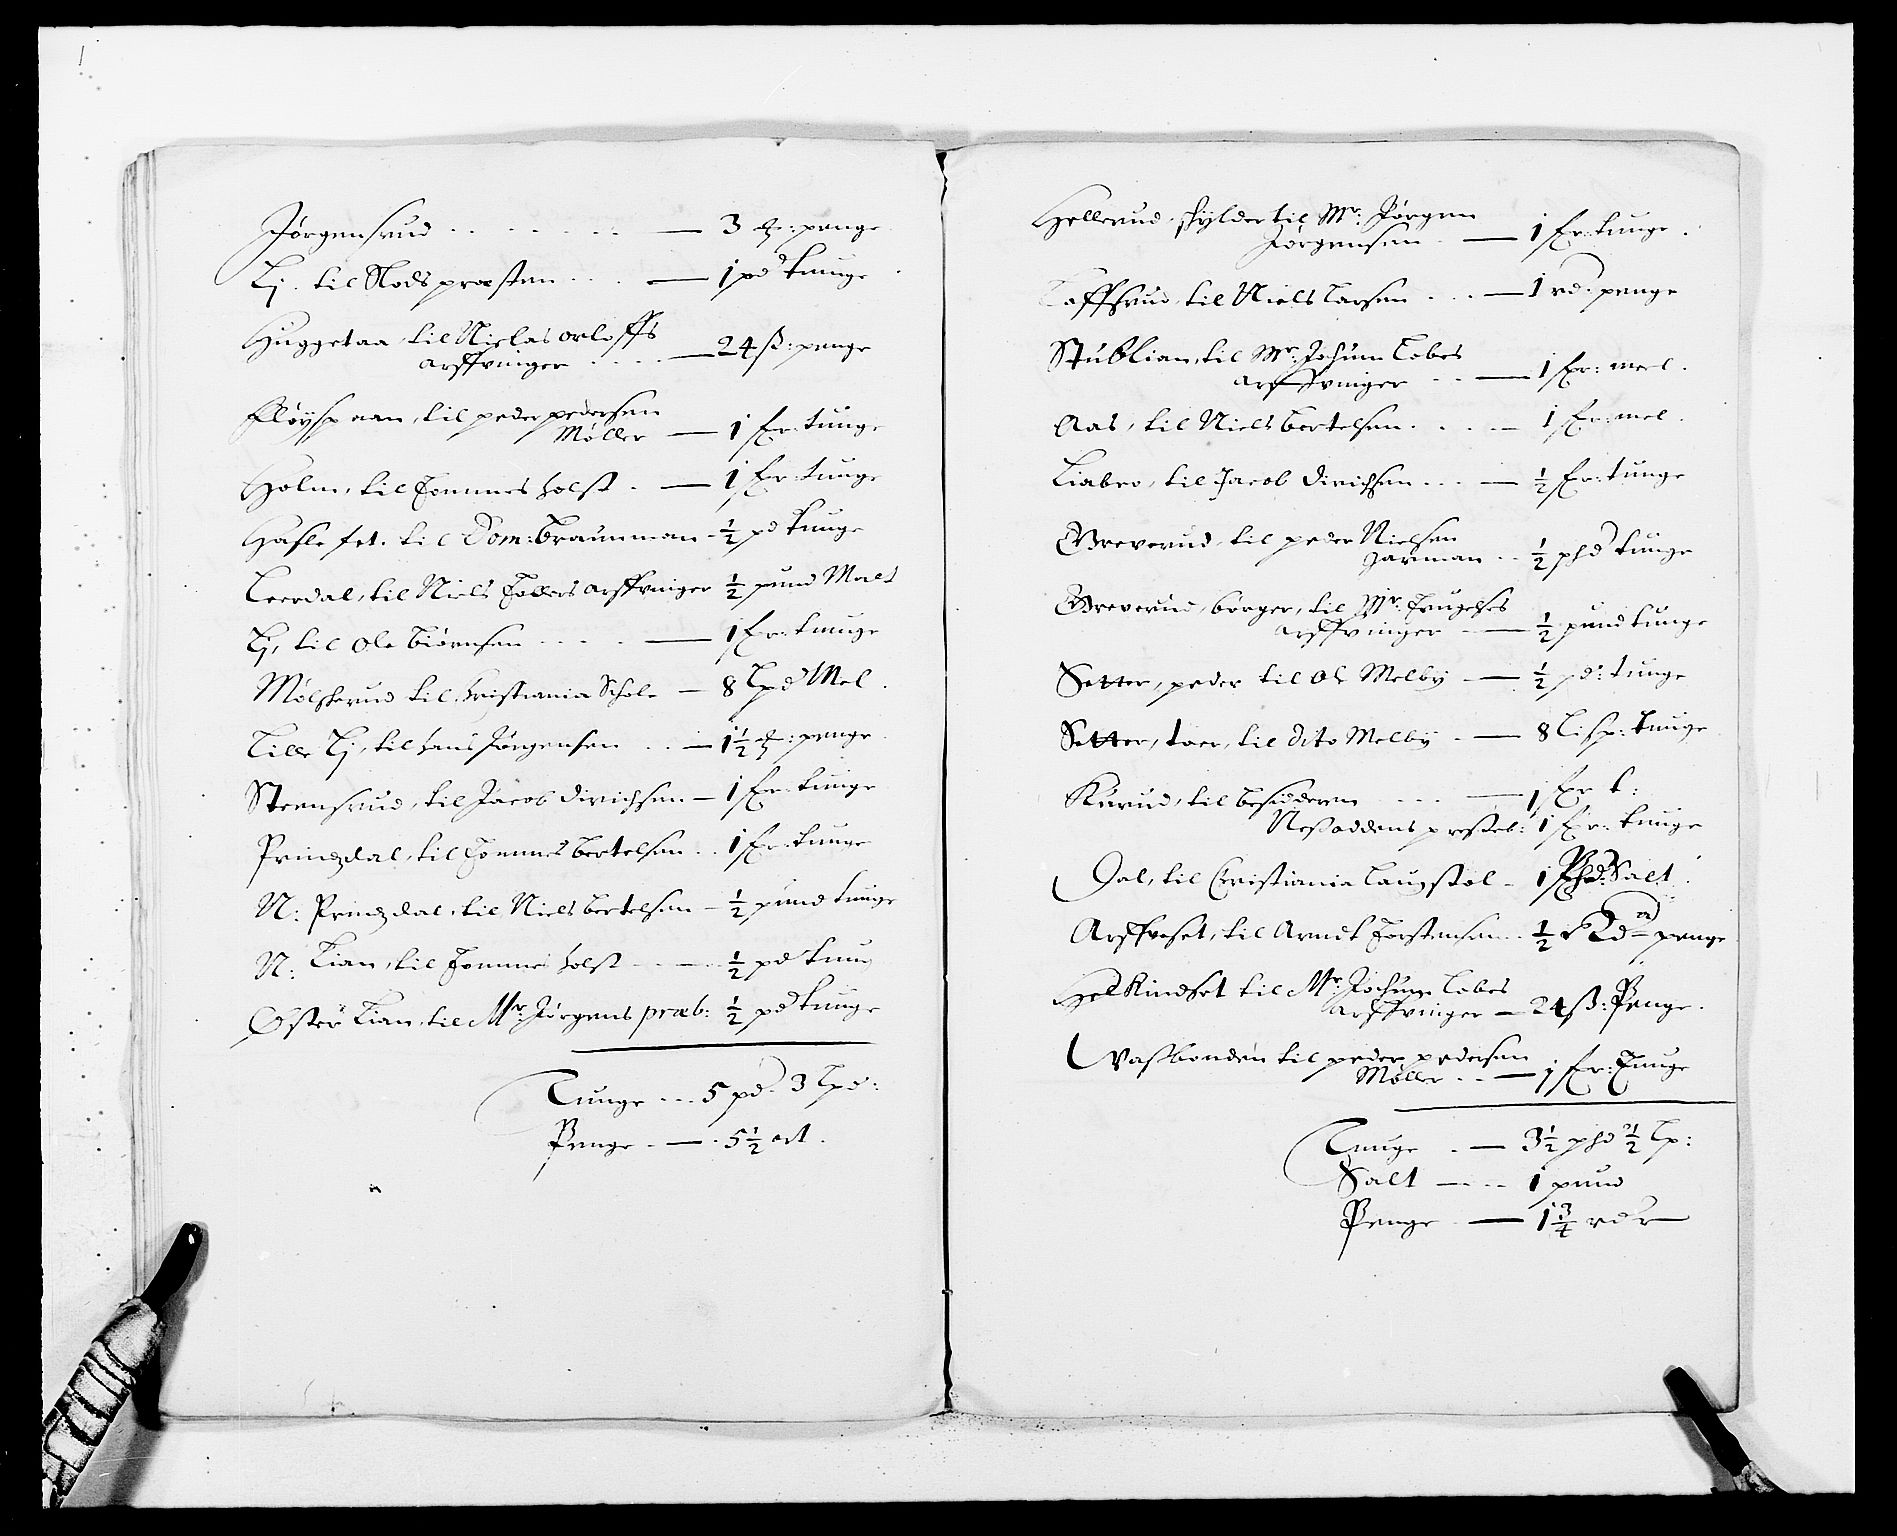 Jørgensrud . . . . . . . — 3 ʒ: penge
Lj. til Nods præsten . . . — 1 pd tunge
Huggetaa, til Nielas orloffs
arffvinger . . . . — 24 ß: penge
Fløysp aan, til peder pedersen
Møller — 1 fr: tunge
Holm, til Tommes Holst . — 1 fr: tunge
Hasle fet. til Dom: Braunman - ½ pd tunge
Leerdal, til Niels Tollers arffvinger ½ pund Malt
Lj, til Ole Biørnsen . . . . — 1 fr: tunge
Mølsherud til Christiania Schole — 8 lpd Mel .
Lille Lj, til Hans Jørgensen . . — 1½ ʒ: penge
Steensrud, til Jacob Dirichsen — 1 fr: tunge
Prindzdal, til Tommes Bertelsen . . 1 fr: tunge
N: Prindzdal, til Niels Bertelsen — ½ pund tunge
N: Lian, til Tommes Holst - — . . ½ pd tung
Øster Lian, til Mr: Jørgens præb: ½ pd tunge
Tunge - . . 5 pd. 3 lpd:
Penge - — . 5½ ort .
Hellerud. skylder til Mr: Jørgen
Jørgensen . — 1 fr: tunge .
Taffsrud, til Niels Larsen . . . — 1 rd. penge
Stublian, til Mr: Jochum Lobes
arffvinger . . — 1 fr: meel .
Aas, til Niels Bertelsen . . . — 1 fr: mel .
Liabro, til Jacob Dirichsen . . . — ½ fr: tunge
Greverud, til peder Nielsen
Jarman . . ½ phd tunge
Greverud, børger, til Mr: Trugelses
arffvinger — ½ pund tunge
Setter, peder til Ole Melby — ½ pd: tunge
Setter, toer, til dito Melby . — 8 Lisp: tunge
Kurud, til besidderen . . . — 1 fr t:
Nesoddens presteb: 1 fr: tunge
Dal, til Christiania Laugstol - 1 Phd: Salt .
Arffveset, til Arndt Torstensen . . ½ Rdr penge
Helkindset til Mr: Jochum Lobes
arffvinger — 24 ß: Penge .
Wassbonden til peder pedersen
Møller . . — 1 fr: Tunge
Tunge . — 3½ phd ½ Lp:
Salt — . . 1 pund
Penge . — 1¾ rdr